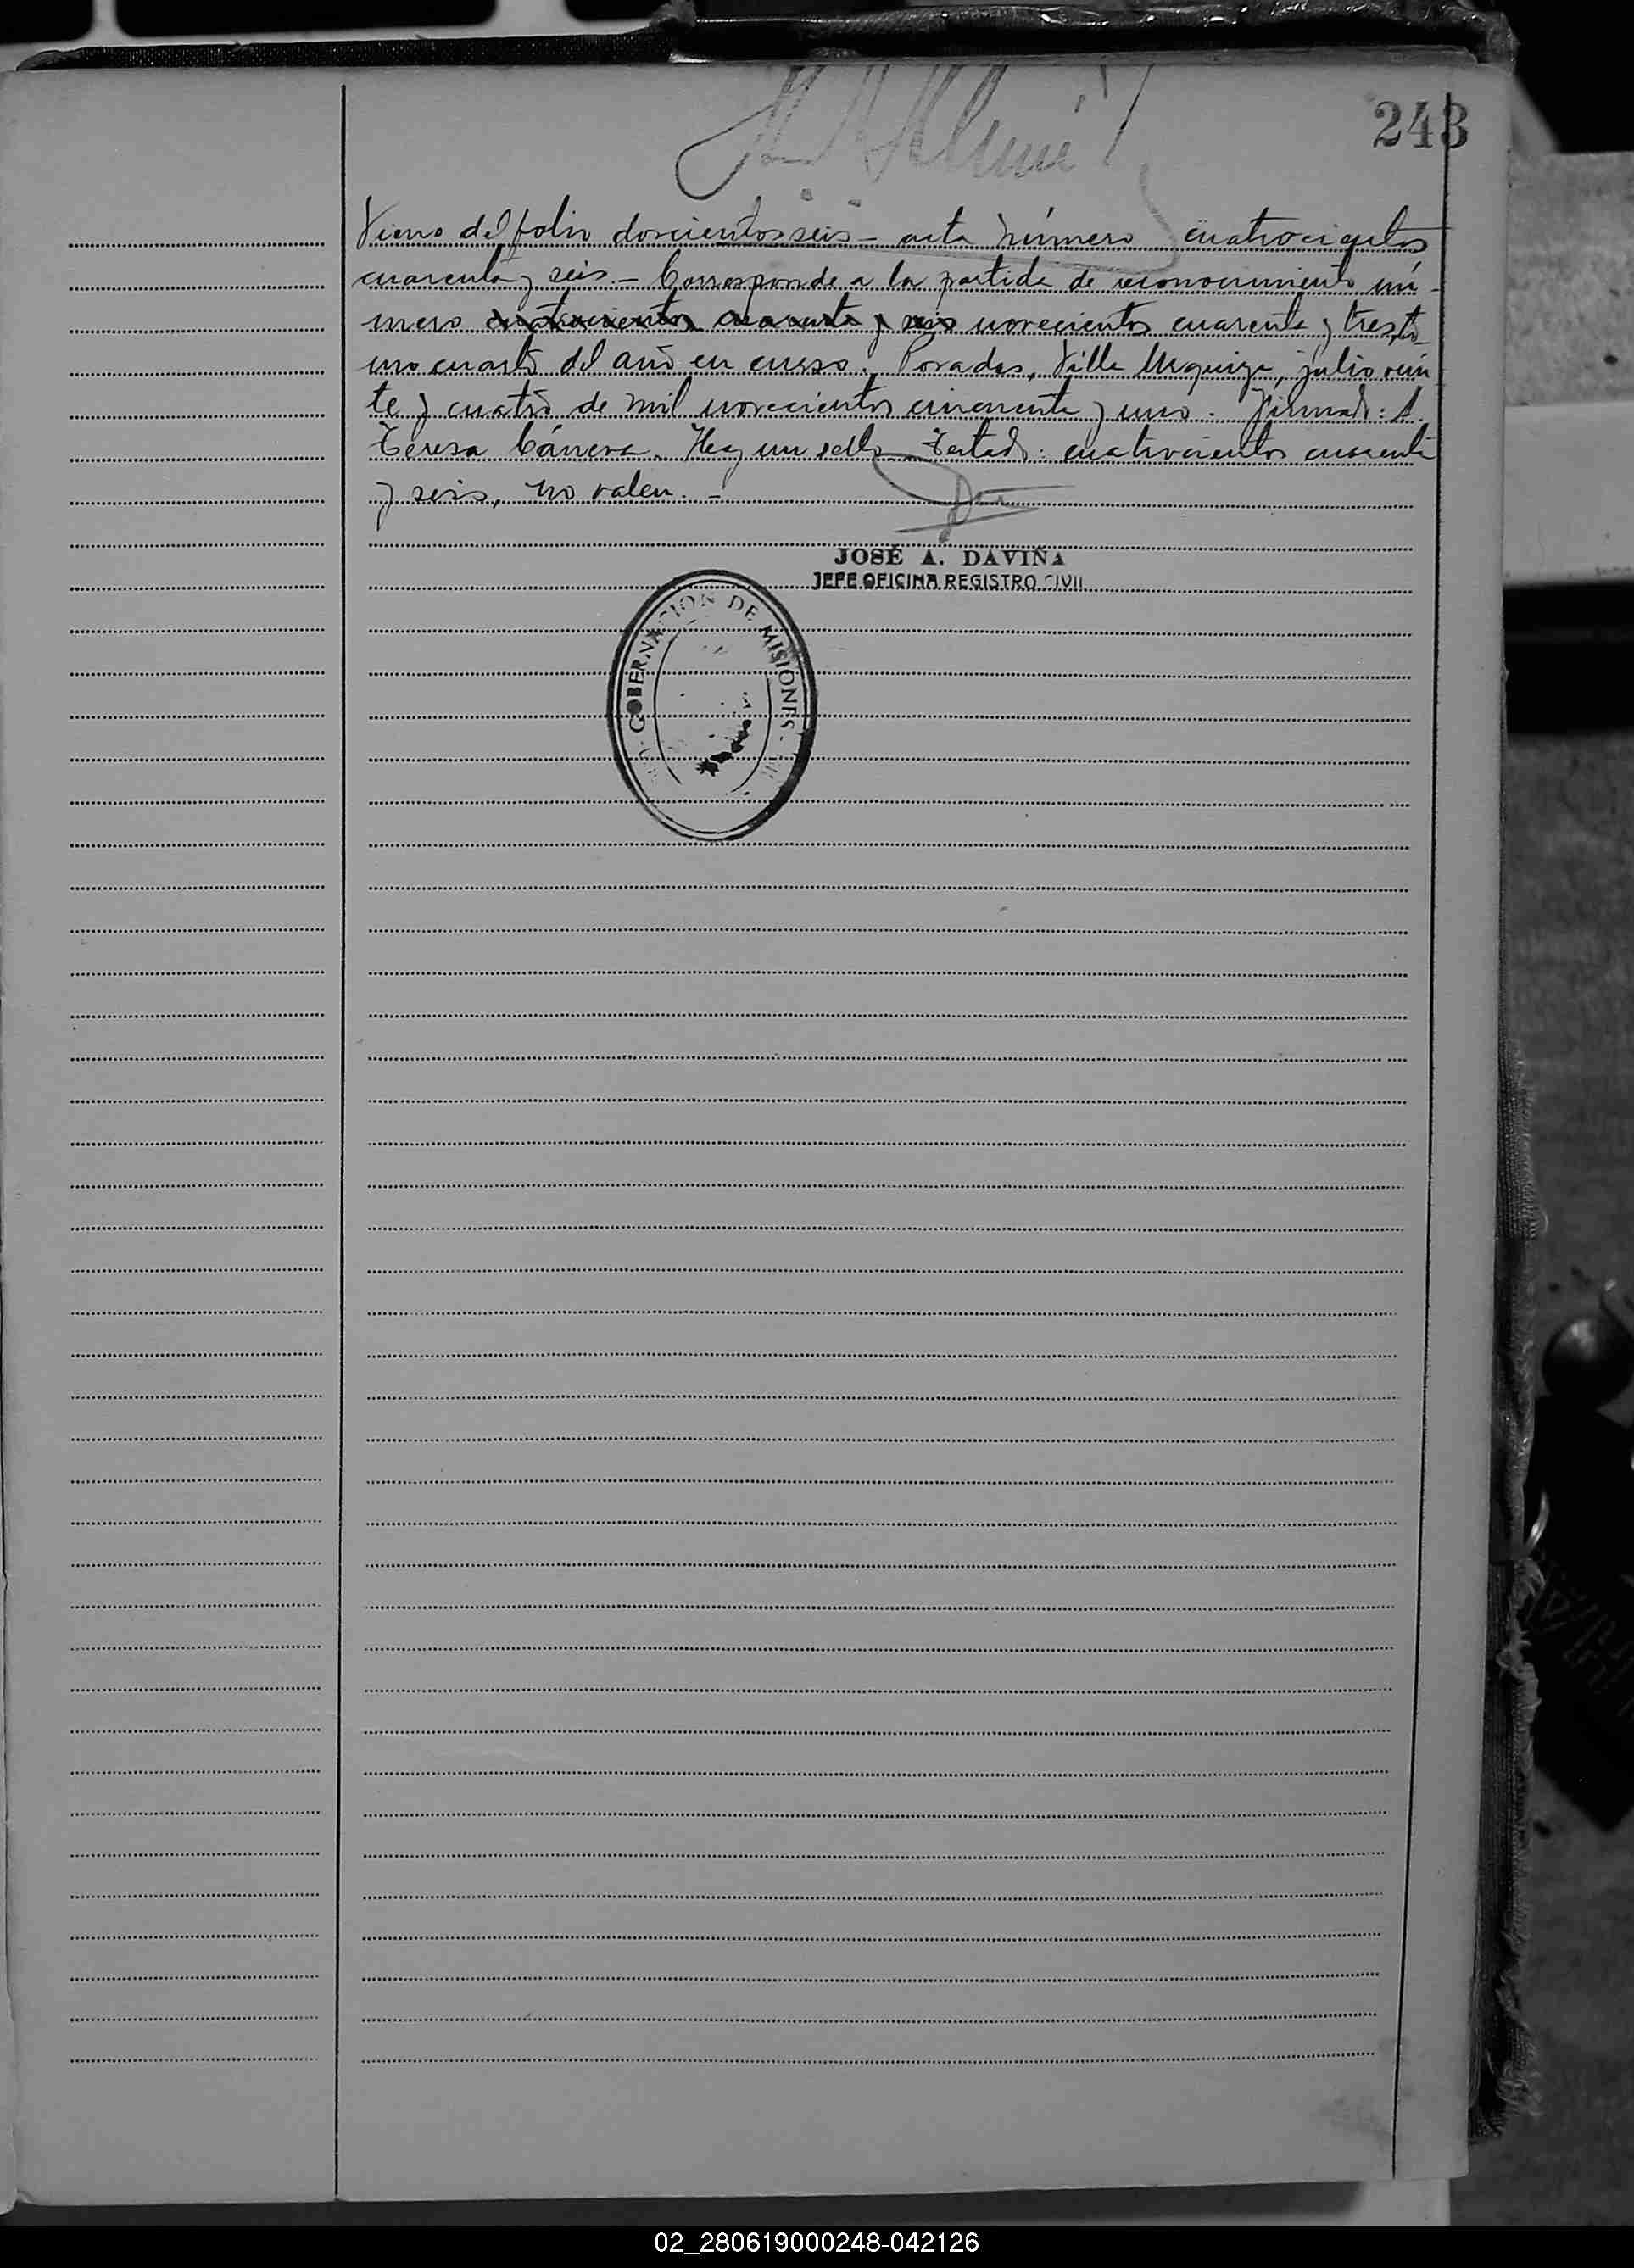 243
Viene del folio doscientos seis - acta número cuatrocientos
cuarenta y seis. - Corresponde a la partida de reconocimiento nú-
mero cuatrocientos cuarenta y seis novecientos cuarenta y tres, to-
mo cuarto del año en curso. Posadas, Villa Urquiza, julio vein
te y cuatro de mil novecientos cincuenta y uno. Firmado: A.
Teresa Cánera. Hay un sello. Testado: cuatrocientos cuarenta
y seis, no valen. -
JOSÉ A. DAVIÑA
JEFE OFICINA REGISTRO CIVIL
GOBERNACION DE MISIONES
02_280619000248-042126